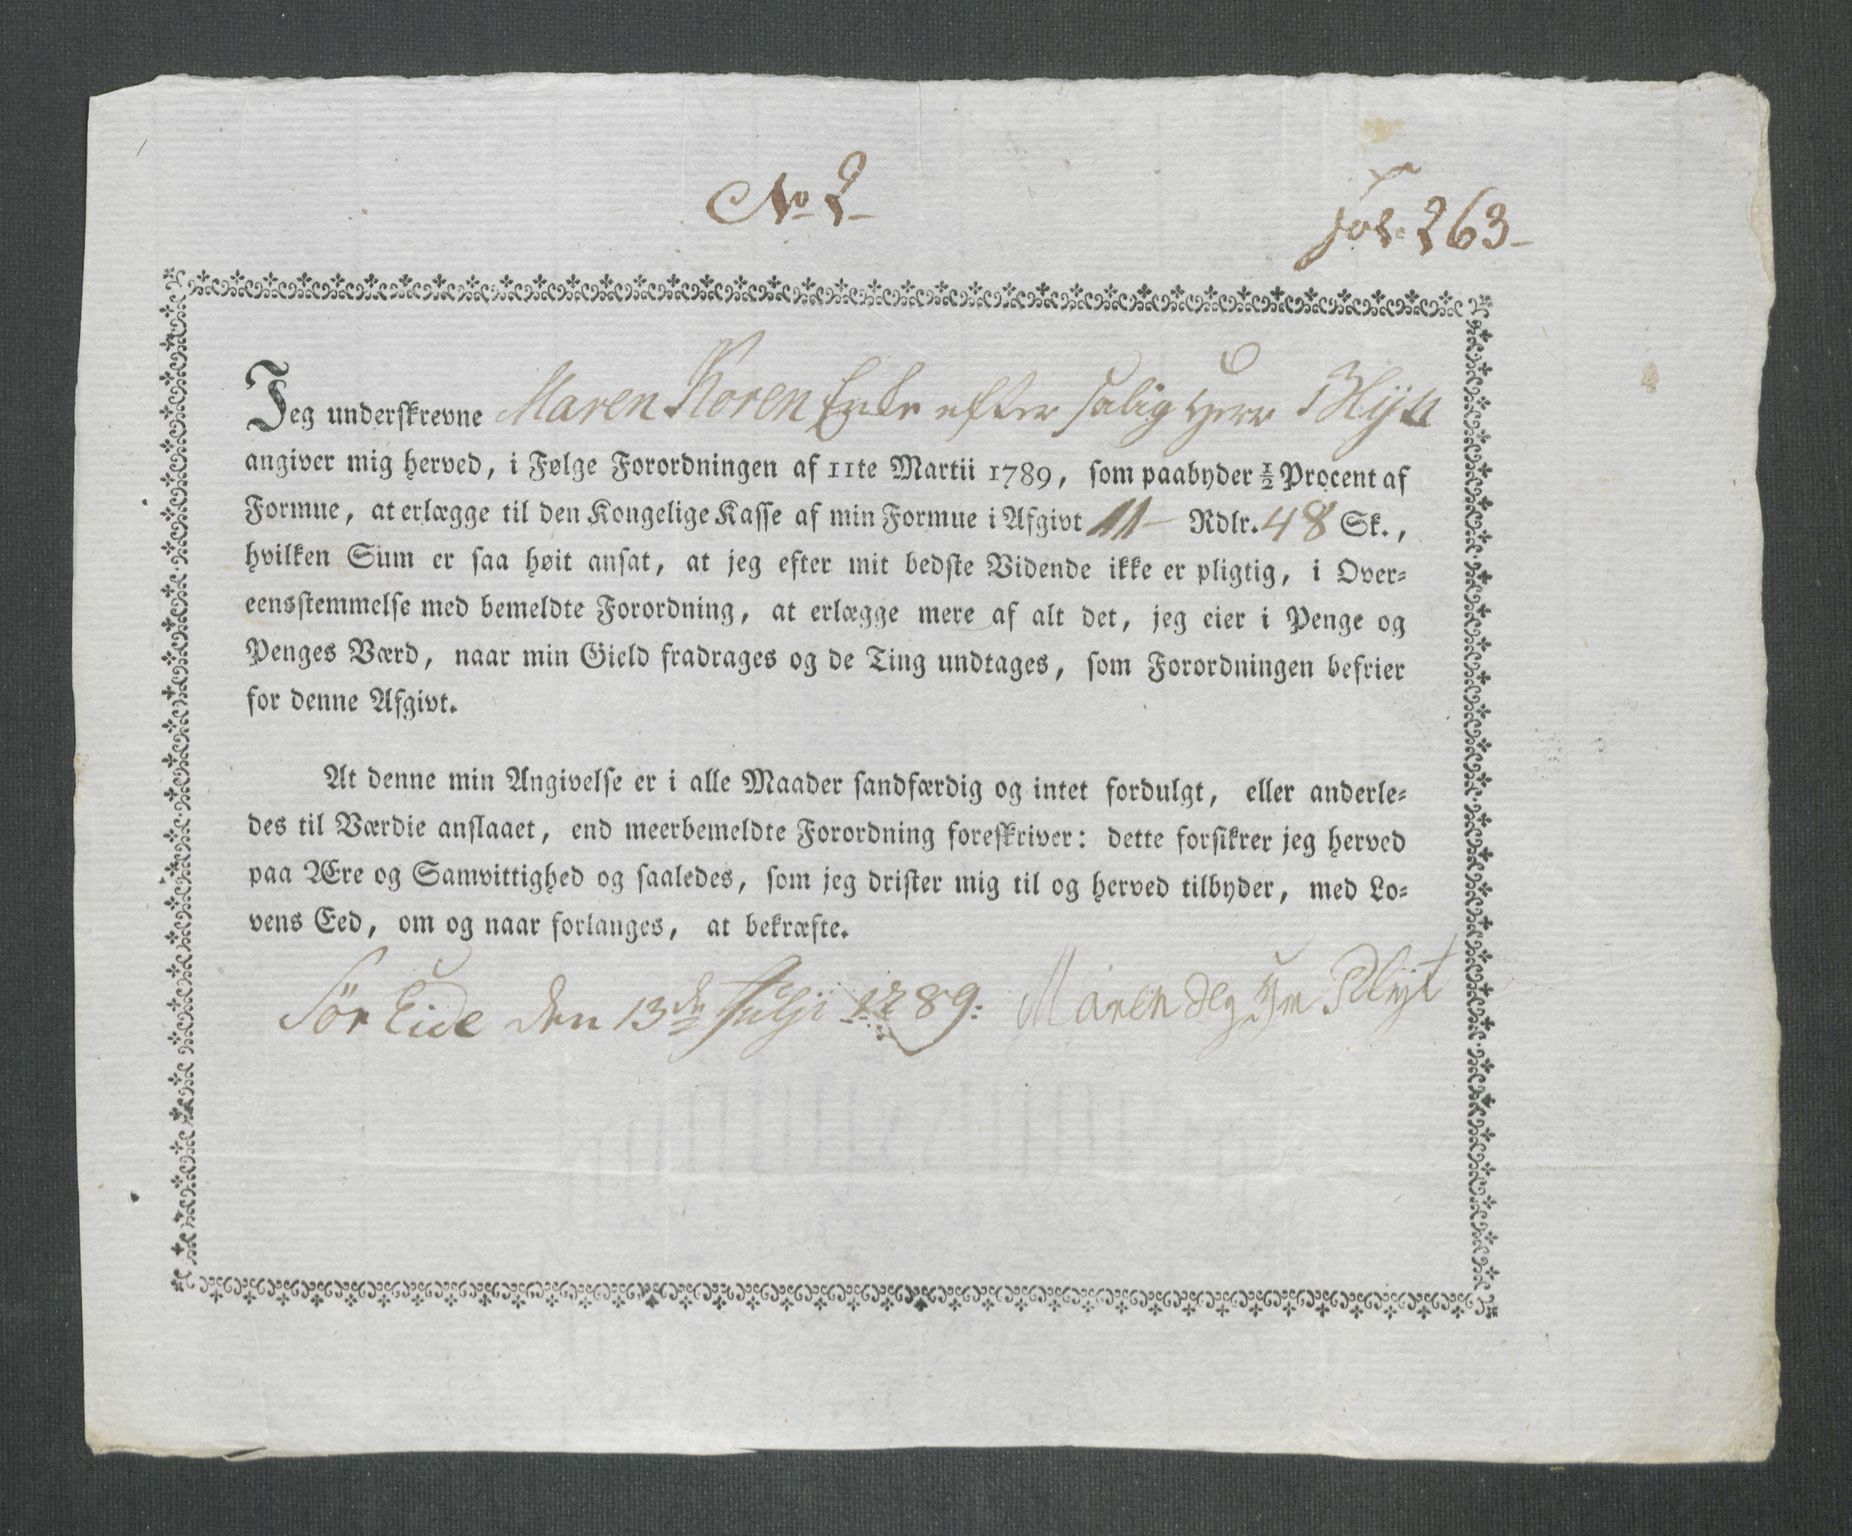 No 2
Fol. 263
Jeg underskrevne Maren Koren Enke efter salig Herr Blijtt
angiver mig herved, i Følge Forordningen af 11te Martii 1789, som paabyder ½ Procent af
Formue, at erlægge til den Kongelige Kasse af min Formue i Afgivt 11 — Rdlr. 48 Sk.,
hvilken Sum er saa høit ansat, at jeg efter mit bedste Vidende ikke er pligtig, i Over-
eensstemmelse med bemeldte Forordning, at erlægge mere af alt det, jeg eier i Penge og
Penges Værd, naar min Gield fradrages og de Ting undtages, som Forordningen befrier
for denne Afgivt.
At denne min Angivelse er i alle Maader sandfærdig og intet fordulgt, eller anderle-
des til Værdie anslaaet, end meerbemeldte Forordning foreskriver: dette forsikrer jeg herved
paa Ære og Samvittighed og saaledes, som jeg drister mig til og herved tilbyder, med Lo-
vens Eed, om og naar forlanges, at bekræfte.
Sör Eide den 13de Julji 1789: Maren Blijt